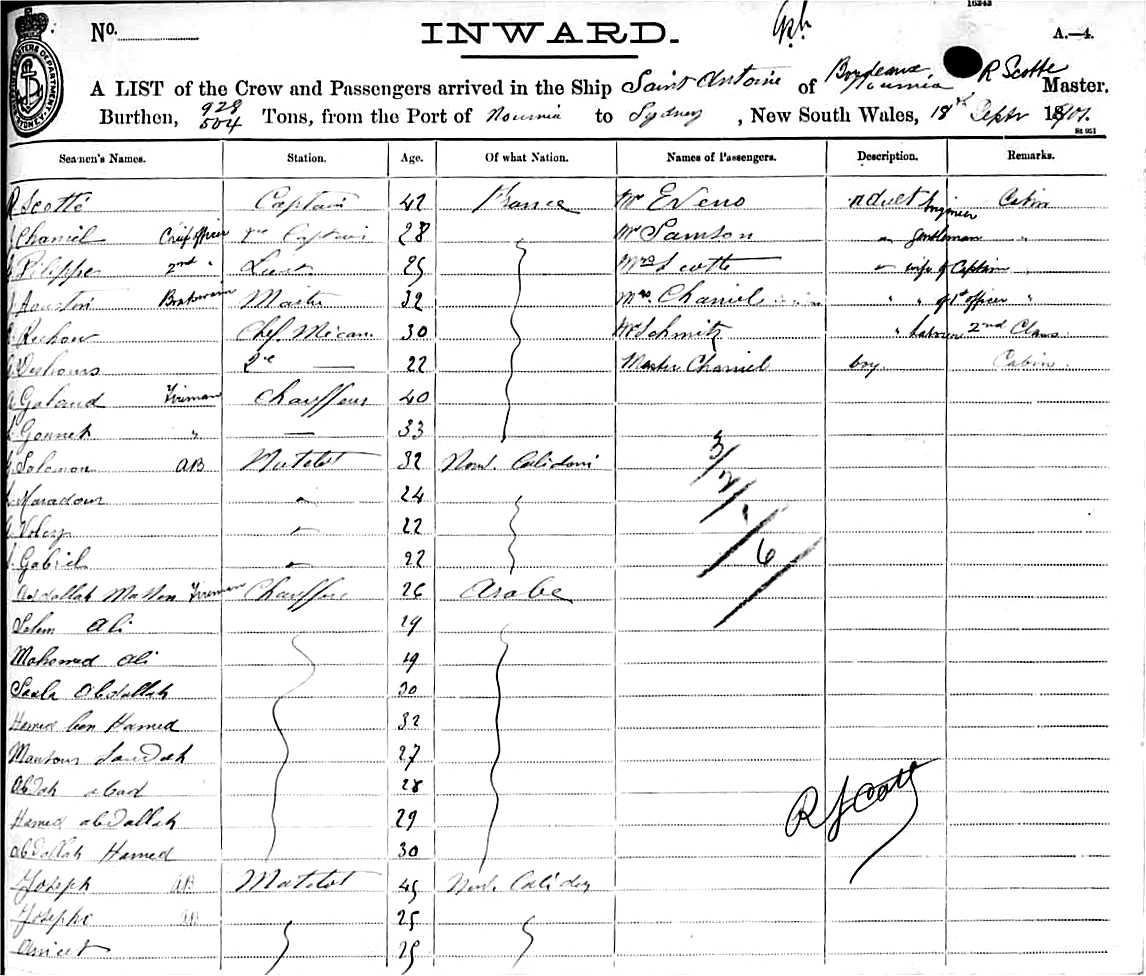 16243
No.
INWARD.
A.—4.
A LIST of the Crew and Passengers arrived in the Ship Saint Antoine of Bordeaux, Noumia R Scotte Master.
Burthen, 928 504 Tons, from the Port of Noumia to Sydney, New South Wales, 18th Septr 1901.
St 951
Seamen's Names. Station. Age. Of what Nation. Names of Passengers. Description. Remarks.
R Scotte Captain 42 France Mr E Veno adult Engineer Cabin
Chaniel Chief officer Captain 28 Mr Samson " Gentleman "
Philippe 2nd " Lieut 25 Mrs Scotte " wife of Captain "
Houston Master 32 Mrs Chaniel " " of 1st officer "
Chef Mécan 30 Mr Schmitz " 2nd Class
2e — 22 Master Chaniel boy Cabin.
Galand Fireman Chauffeur 40
Gonnet " — 33
Solomon AB Matelot 32 Nouv. Calidoni
" 24
Voley " 22
Gabriel " 22
Abdallah Fireman Chauffeur 26 Arabe
Salem Ali 29
Mohomed Ali 19
Abdallah 30
Hamed ben Hamed 32
27
Abdah 28
Hamed abdallah 29
abdallah Hamed 30
Joseph AB Matelot 45 Nouv. Calidoy
Josepho AB 25
Anicet 25
3/
2/
1/
6
R Scott